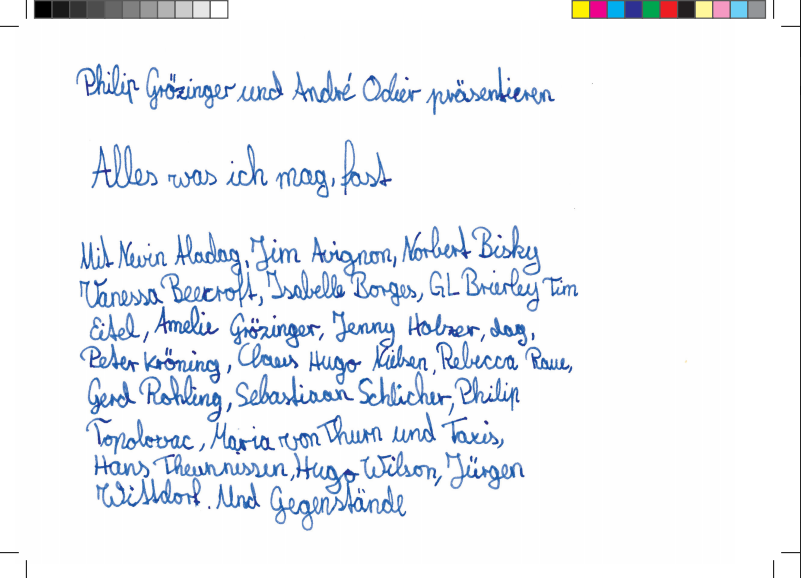 Philip Grözinger und André Odier präsentieren
Alles was ich mag, fast
Mit Nevin Aladag, Jim Avignon, Norbert Bisky
Vanessa Beecroft, Isabelle Borges, GL Brierley Tim
Eitel, Amelie Grözinger, Jenny Holzer, dag,
Peter Kröning, Claus Hugo Nielsen, Rebecca Raue,
Gerd Rohling, Sebastiaan Schlicher, Philip
Topolovac, Maria von Thurn und Taxis,
Hans Theunnissen, Hugo Wilson, Jürgen
Wittdorf. Und Gegenstände